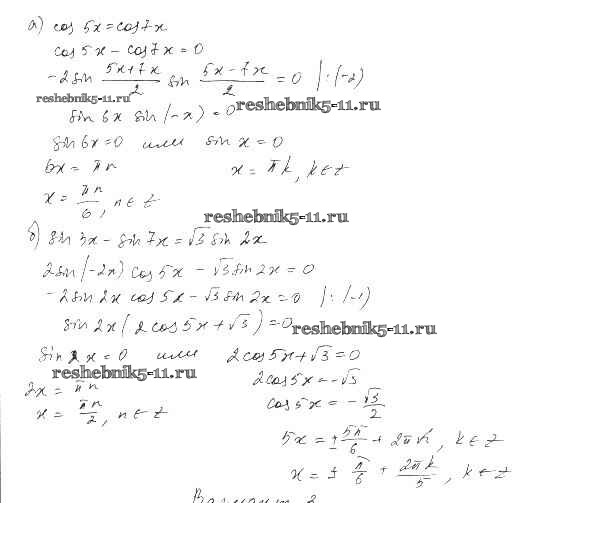 а) cos 5x = cos 7x
cos 5x - cos 7x = 0
-2 sin (5x+7x)/2 sin (5x-7x)/2 = 0 | :(-2)
reshebnik5-11.ru
reshebnik5-11.ru
sin 6x sin (-x) = 0
sin 6x = 0 или sin x = 0
6x = πn x = πk, k ∈ z
x = πn/6, n ∈ z
reshebnik5-11.ru
б) sin 3x - sin 7x = √3 sin 2x
2 sin (-2x) cos 5x - √3 sin 2x = 0
-2 sin 2x cos 5x - √3 sin 2x = 0 | :(-1)
sin 2x (2 cos 5x + √3) = 0
reshebnik5-11.ru
sin 2x = 0 или 2 cos 5x + √3 = 0
reshebnik5-11.ru
2x = πn 2 cos 5x = -√3
x = πn/2, n ∈ z cos 5x = -√3/2
5x = ± 5π/6 + 2πk, k ∈ z
x = ± π/6 + 2πk/5, k ∈ z